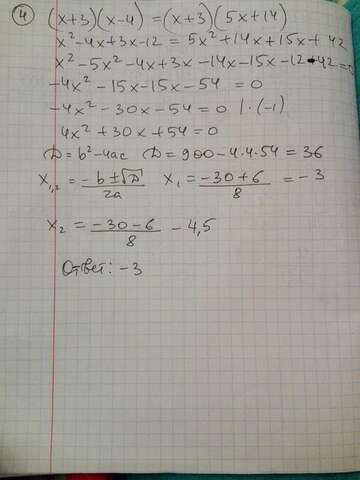 ④ (x+3)(x-4) = (x+3)(5x+14)
x²-4x+3x-12 = 5x²+14x+15x+42
x²-5x²-4x+3x-14x-15x-12-42=0
-4x²-15x-15x-54 = 0
-4x²-30x-54=0 | ·(-1)
4x²+30x+54=0
D=b²-4ac D=900-4·4·54=36
x₁,₂=(-b±√D)/2a x₁=(-30+6)/8 = -3
x₂=(-30-6)/8 -4,5
Ответ: -3